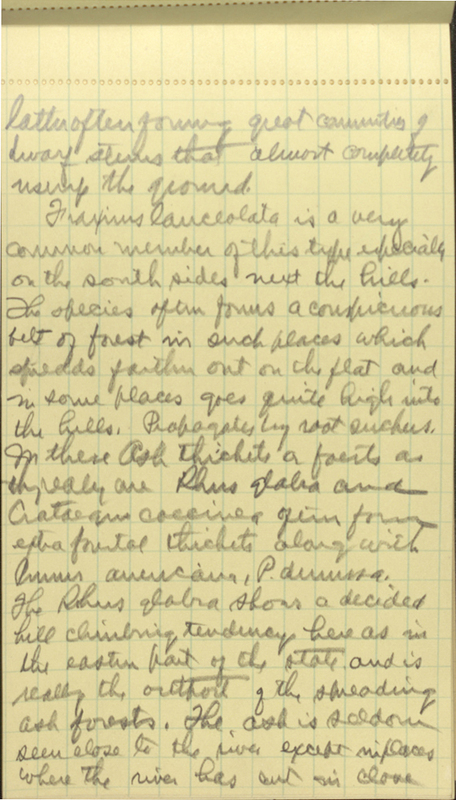 latter often forming great communities of
dwarf stems that almost completely
usurp the ground.
Fraxinus lanceolata is a very
common member of this type especially
on the south sides next the hills.
The species often forms a conspicuous
belt of forest in such places which
spreads farther out on the flat and
in some places goes quite high into
the hills. Propagates by root suckers.
In these Ash thickets or forests as
they really are Rhus glabra and
Crataegus coccinea often form
extra frontal thickets along with
Prunus americana, P. demissa.
The Rhus glabra shows a decided
hill climbing tendency here as in
the eastern part of the state and is
really the outpost of the spreading
ash forests. The ash is seldom
seen close to the river except in places
where the river has cut in close